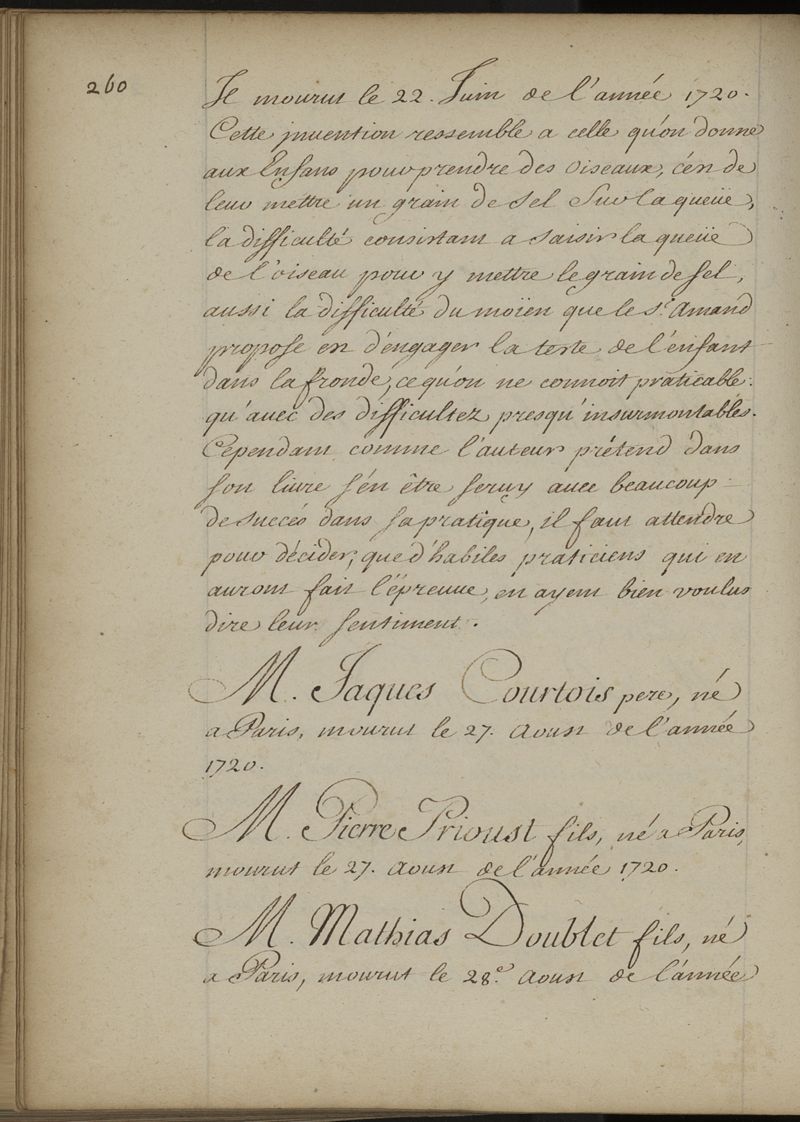 260
Il mourut le 22. Juin de l'année 1720.
Cette jnuention ressemble a celle qu'on donne
aux Enfans pour prendre des oiseaux, c'en de
leur mettre un grain de sel Sur la queüe,
la difficulté consistant a saisir la queüe
de l'oiseau pour y mettre le grain de sel,
aussi la difficulté du moïen que le Sr. Amand
propose en d'engager la teste de l'enfant
dans la fronde, ce qu'on ne connoit praticable
qu'avec des difficultez presqu'insurmontables.
Cependant comme l'auteur prétend dans
son liure s'en être seruy auec beaucoup
de succés dans sa pratique, il faut attendre
pour décider, que d'habiles praticiens qui en
auront fait l'épreuue, en ayent bien voulus
dire leur sentiment.
M. Jaques Courtois pere, né
a Paris, mourut le 27. Aoust de l'année
1720.
M. Pierre Prioust fils, né a Paris,
mourut le 27. Aoust de l'année 1720.
M. Mathias Doublet fils, né
a Paris, mourut le 28.e Aoust de l'année